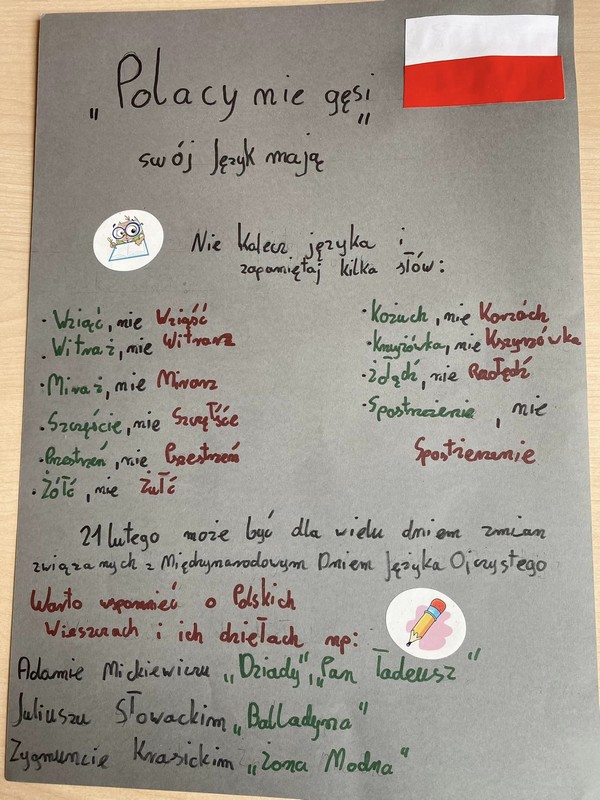 „Polacy nie gęsi”
swój język mają
Nie kalecz języka i
zapamiętaj kilka słów:
· Wziąć, nie Wziąść
· Witraż, nie Witrarz
· Miraż, nie Mirarz
· Szczęście, nie
· Przestrzeń, nie
· Żółć, nie Żułć
· Kożuch, nie
· Krzyżówka, nie Kszyrzówka
· Żołądź, nie
· Spostrzeżenie, nie
21 lutego może być dla wielu dniem zmian
związanych z Międzynarodowym Dniem Języka Ojczystego
Warto wspomnieć o Polskich
Wieszczach i ich dziełach np:
Adamie Mickiewiczu „Dziady”, „Pan Tadeusz”
Juliuszu Słowackim „Balladyna”
Zygmuncie Krasickim „Żona Modna”